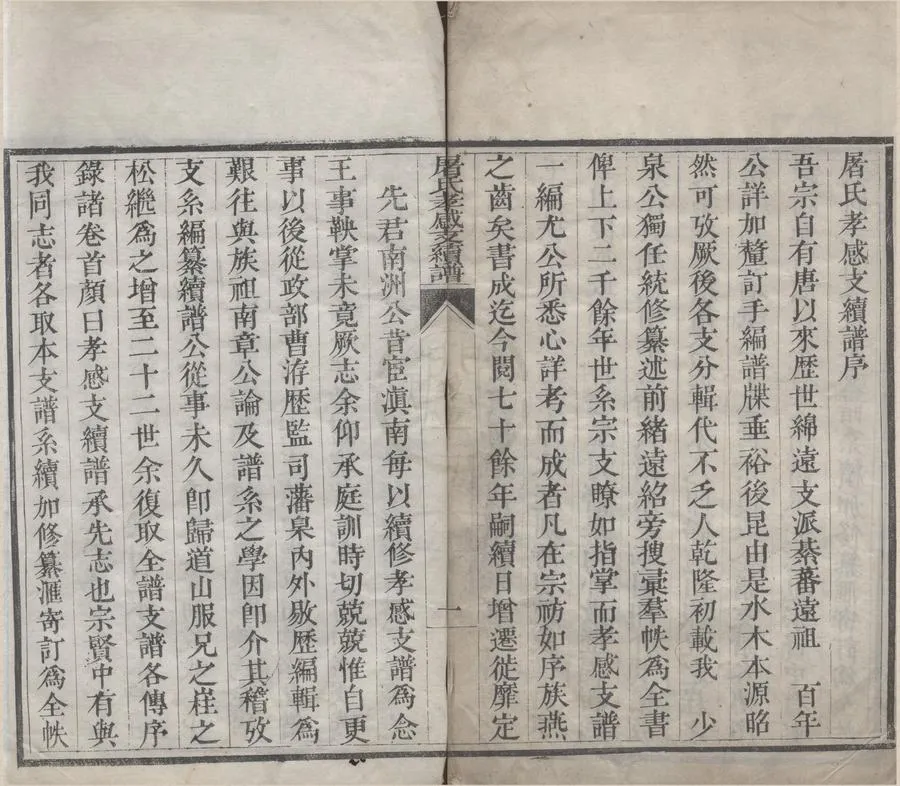 屠氏孝感支續譜序
吾宗自有唐以來歷世綿遠支派蓁蕃遠祖　百年
公詳加釐訂手編譜牒垂裕後昆由是水木本源昭
然可攷厥後各支分輯代不乏人乾隆初載我　少
泉公獨任統修纂述前緒遠紹旁搜彚羣帙為全書
俾上下二千餘年世系宗支瞭如指掌而孝感支譜
一編尤公所悉心詳考而成者凡在宗祊如序族燕
之齒矣書成迄今閱七十餘年嗣續日增遷徙靡定
屠氏孝感支續譜
一
先君南洲公昔宦滇南每以續修孝感支譜為念
王事鞅掌未竟厥志余仰承庭訓時切兢兢惟自更
事以後從政部曹洊歷監司藩臬內外敭歷編輯為
艱往與族祖南章公論及譜系之學因卽介其稽攷
支系編纂續譜公從事未久卽歸道山服兄之崔之
松繼為之增至二十二世余復取全譜支譜各傳序
錄諸卷首顏曰孝感支續譜承先志也宗賢中有與
我同志者各取本支譜系續加修纂滙寄訂為全帙